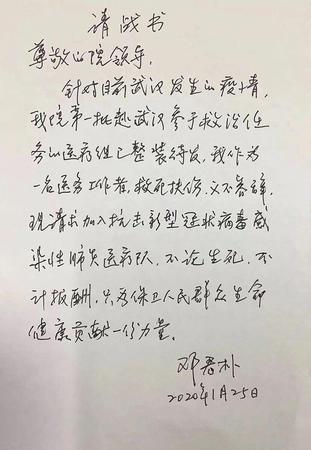 请战书
尊敬的院领导,
针对目前武汉发生的疫情,
我院第一批赴武汉参于救治任
务的医疗组已整装待发,我作为
一名医务工作者,救死扶伤,义不容辞,
现请求加入抗击新型冠状病毒感
染性肺炎医疗队,不论生死,不
计报酬,只为保卫人民群众生命
健康贡献一份力量。
邓
2020年1月25日